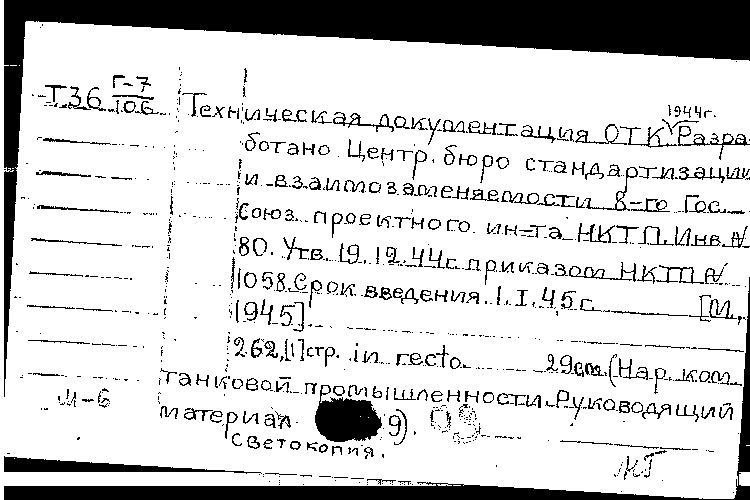 Т36 Г-7/106
1944г.
Техническая документация ОТК Разра-
ботано Центр. бюро стандартизации
и взаимозаменяемости 8-го Гос.
Союз. проектного ин-та НКТП. Инв. №
80. Утв. 19.12.44г. приказом НКТП №
1058. Срок введения. 1.I.45г. [М.,
1945].
262,[1]стр. in recto. 29см. (Нар. ком.
танковой промышленности. Руководящий
материал 9).
Светокопия.
М-6